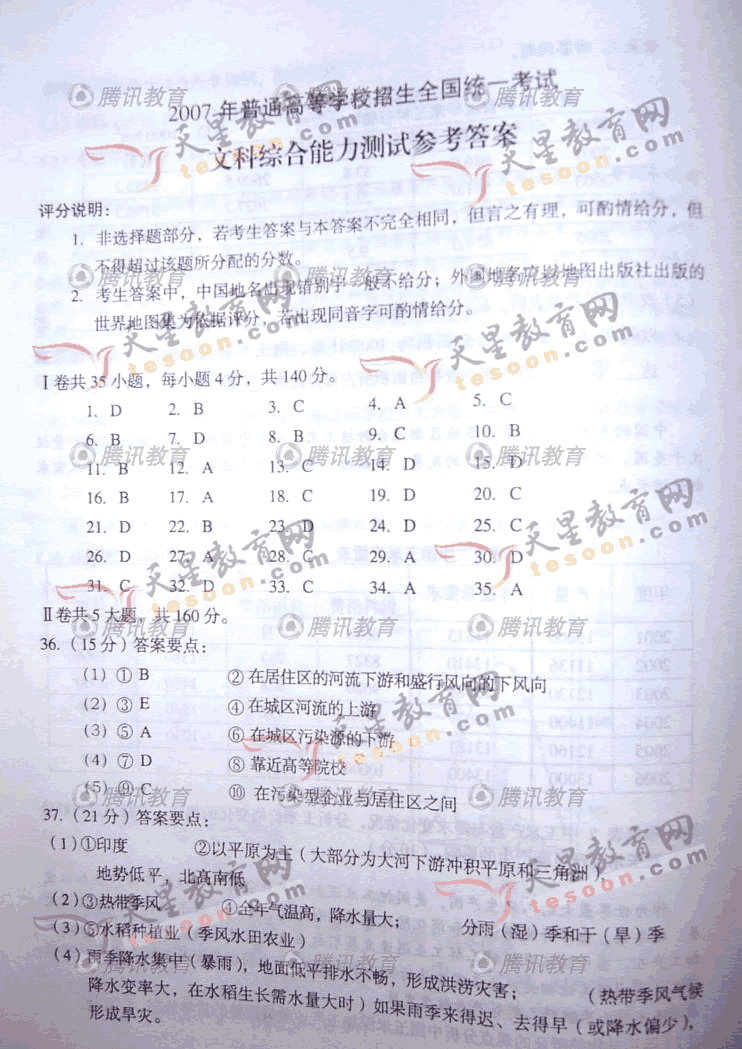 2007年普通高等学校招生全国统一考试
文科综合能力测试参考答案
评分说明：
1. 非选择题部分，若考生答案与本答案不完全相同，但言之有理，可酌情给分，但
不得超过该题所分配的分数。
2. 考生答案中，中国地名出现错别字一般不给分；外国地名应以地图出版社出版的
世界地图集为依据评分，若出现同音字可酌情给分。
Ⅰ卷共35小题，每小题4分，共140分。
1. D 2. B 3. C 4. A 5. C
6. B 7. D 8. B 9. C 10. B
11. B 12. A 13. C 14. D 15. D
16. B 17. A 18. C 19. D 20. C
21. D 22. B 23. D 24. D 25. C
26. D 27. A 28. C 29. A 30. D
31. C 32. D 33. C 34. A 35. A
Ⅱ卷共5大题，共160分。
36.（15分）答案要点：
（1）①B ②在居住区的河流下游和盛行风向的下风向
（2）③E ④在城区河流的上游
（3）⑤A ⑥在城区污染源的下游
（4）⑦D ⑧靠近高等院校
（5）⑨C ⑩在污染型企业与居住区之间
37.（21分）答案要点：
（1）①印度 ②以平原为主（大部分为大河下游冲积平原和三角洲），
地势低平，北高南低
（2）③热带季风 ④全年气温高，降水量大； 分雨（湿）季和干（旱）季
（3）⑤水稻种植业（季风水田农业）
（4）雨季降水集中（暴雨），地面低平排水不畅，形成洪涝灾害； （热带季风气候
降水变率大，在水稻生长需水量大时）如果雨季来得迟、去得早（或降水偏少），
形成旱灾。
腾讯教育
天星教育网
tesoon.com